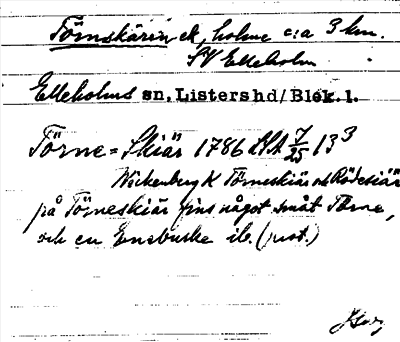 Törnskären ek, holme c:a 3 km.
SV Elleholm
Elleholms sn. Listershd/Blek. l.
Törne = Skiär 1786 LSA 7/25 13³
Wickenberg K Törneskiär och Rödeskiär
på Törneskiär fins något småt Törne,
och en Enebuske ib. (just.)